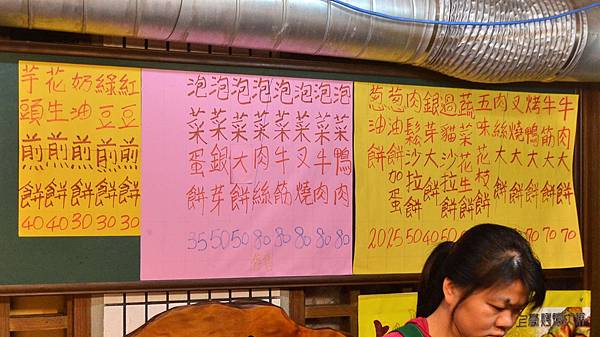 牛肉大餅 70
牛筋大餅 70
烤鴨大餅
叉燒大餅
肉絲大餅
五味花枝餅
蔬菜花生餅
過貓沙拉餅 50
銀芽大餅 40
肉鬆沙拉餅 50
葱油餅加蛋 25
葱油餅 20
泡菜鴨肉 80
泡菜牛肉 80
泡菜叉燒 80
泡菜牛筋 80
泡菜肉絲 80
泡菜大餅 50
泡菜銀芽 50
泡菜蛋餅 35
紅豆煎餅 30
綠豆煎餅 30
奶油煎餅 30
花生煎餅 40
芋頭煎餅 40